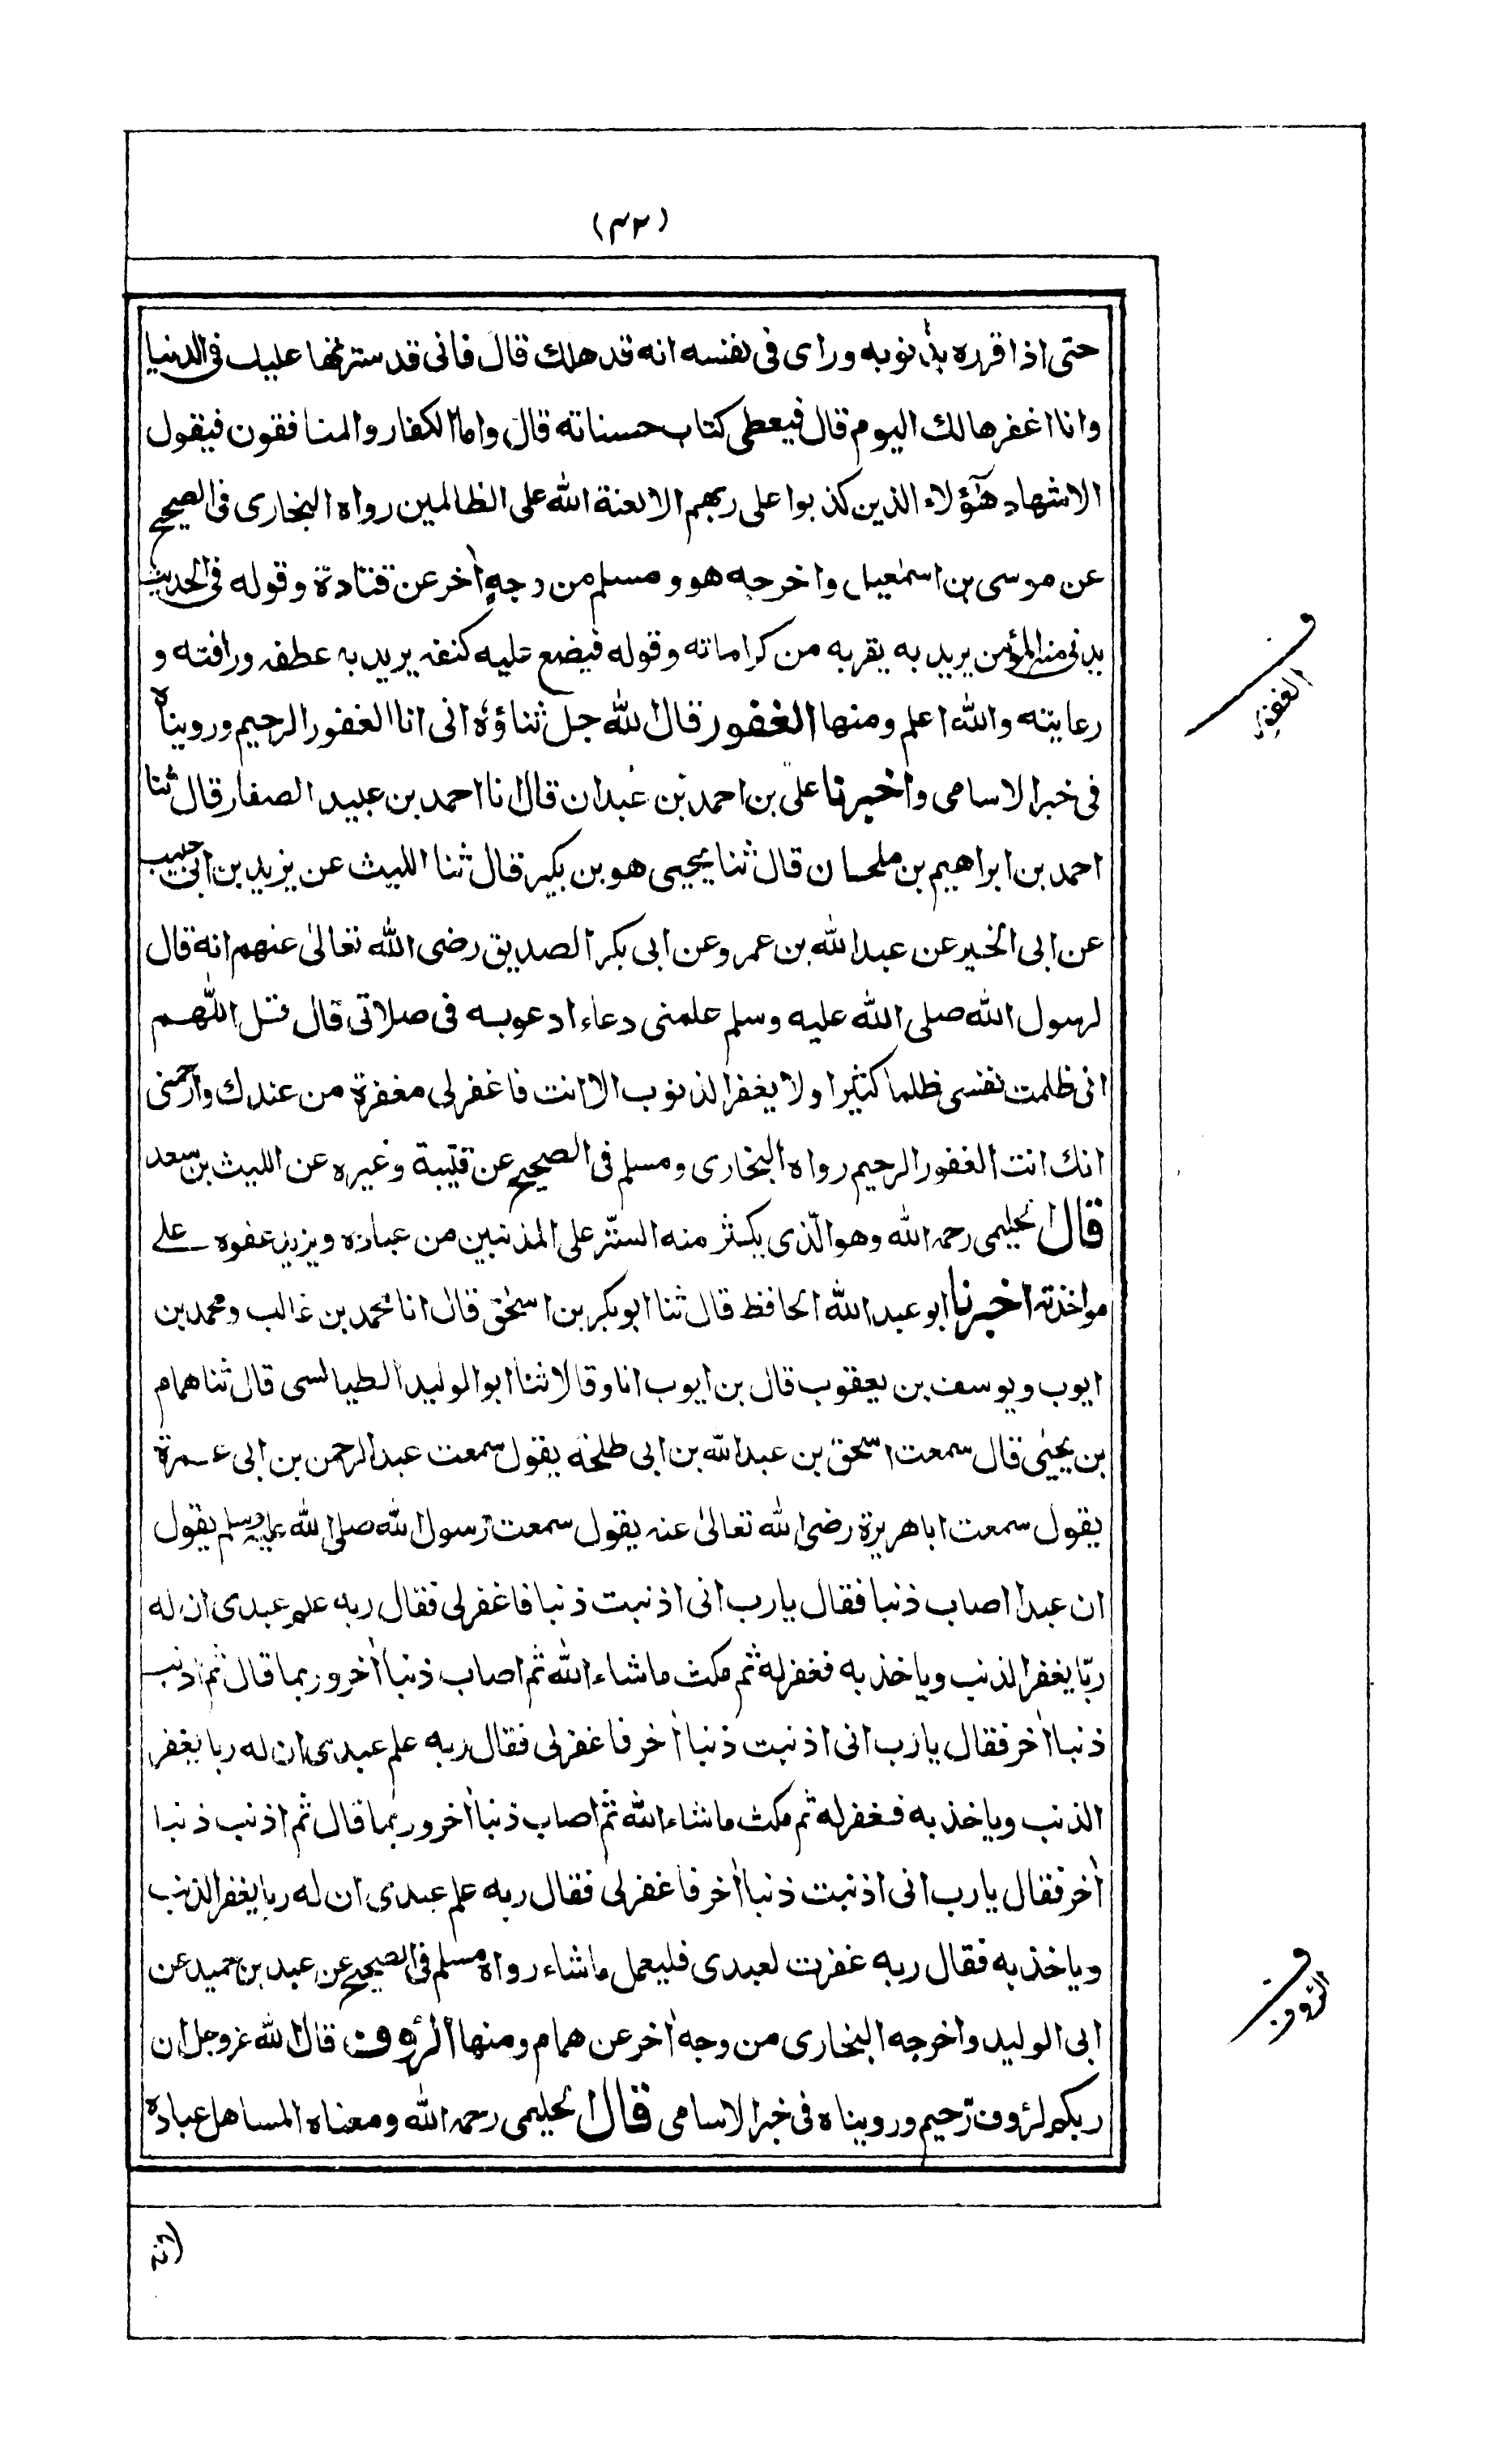 (٤٢)
حتى اذا قرره بذنوبه وراى فى نفسه انه قد هلك قال فانى قد سترتها عليك فى الدنيا
وانا اغفرها لك اليوم قال فيعطى كتاب حسناته قال واما الكفار والمنافقون فيقول
الاشهاد هٰٓؤلاء الذين كذبوا على ربهم الا لعنة الله على الظالمين رواه البخارى فى الصحيح
عن موسى بن اسمٰعيل واخرجه هو ومسلم من وجهٍ اٰخر عن قتادة وقوله فى الحديث
يدنى منه المؤمن يريد به يقربه من كراماته وقوله فيضع عليه كنفه يريد به عطفه ورافته و
رعايته والله اعلم ومنها الغفور قال الله جل ثناؤهٗ انى انا الغفور الرحيم ورويناه
فى خبر الاسامى واخبرنا على بن احمد بن عبدان قال انا احمد بن عبيد الصفار قال ثنا
احمد بن ابراهيم بن ملحان قال ثنا يحيى هو بن بكير قال ثنا الليث عن يزيد بن ابى حبيب
عن ابى الخير عن عبد الله بن عمرو عن ابى بكر الصديق رضى الله تعالىٰ عنهم انه قال
لرسول الله صلى الله عليه وسلم علمنى دعاء ادعو به فى صلاتى قال قل اللّٰهم
انى ظلمت نفسى ظلما كثيرا ولا يغفر الذنوب الا انت فاغفر لى مغفرة من عندك وارحمنى
انك انت الغفور الرحيم رواه البخارى ومسلم فى الصحيح عن قتيبة وغيره عن الليث بن سعد
قال الحليمى رحمه الله وهو الّذى يكثر منه الستّر على المذنبين من عباده ويزيد عفوه على
مواخذته اخبرنا ابو عبد الله الحافظ قال ثنا ابو بكر بن اسحٰق قال انا محمد بن غالب ومحمد بن
ايوب ويوسف بن يعقوب قال بن ايوب انا وقالا ثنا ابو الوليد الطيالسى قال ثنا همام
بن يحيٰى قال سمعت اسحٰق بن عبد الله بن ابى طلحة يقول سمعت عبد الرحمن بن ابى عمرة
يقول سمعت ابا هريرة رضى الله تعالىٰ عنه يقول سمعت رسول الله صلى الله عليه وسلم يقول
ان عبدا اصاب ذنبا فقال يا رب انى اذنبت ذنبا فاغفر لى فقال ربه علم عبدى ان له
ربّا يغفر الذنب وياخذ به فغفر له ثم مكث ما شاء الله ثم اصاب ذنبا اٰخر وربما قال ثم اذنب
ذنبا اٰخر فقال يا رب انى اذنبت ذنبا اٰخر فاغفر لى فقال ربه علم عبدى ان له ربا يغفر
الذنب وياخذ به فغفر له ثم مكث ما شاء الله ثم اصاب ذنبا اٰخر وربما قال ثم اذنب ذنبا
اٰخر فقال يا رب انى اذنبت ذنبا اٰخر فاغفر لى فقال ربه علم عبدى ان له ربا يغفر الذنب
وياخذ به فقال ربه غفرت لعبدى فليعمل ما شاء رواه مسلم فى الصحيح عن عبد بن حميد عن
ابى الوليد واخرجه البخارى من وجه اٰخر عن همام ومنها الرؤوف قال الله عز وجل ان
ربكم لرؤوف رّحيم ورويناه فى خبر الاسامى قال الحليمى رحمه الله ومعناه المساهل عباده
ف
الغفور
ف
الرؤوف